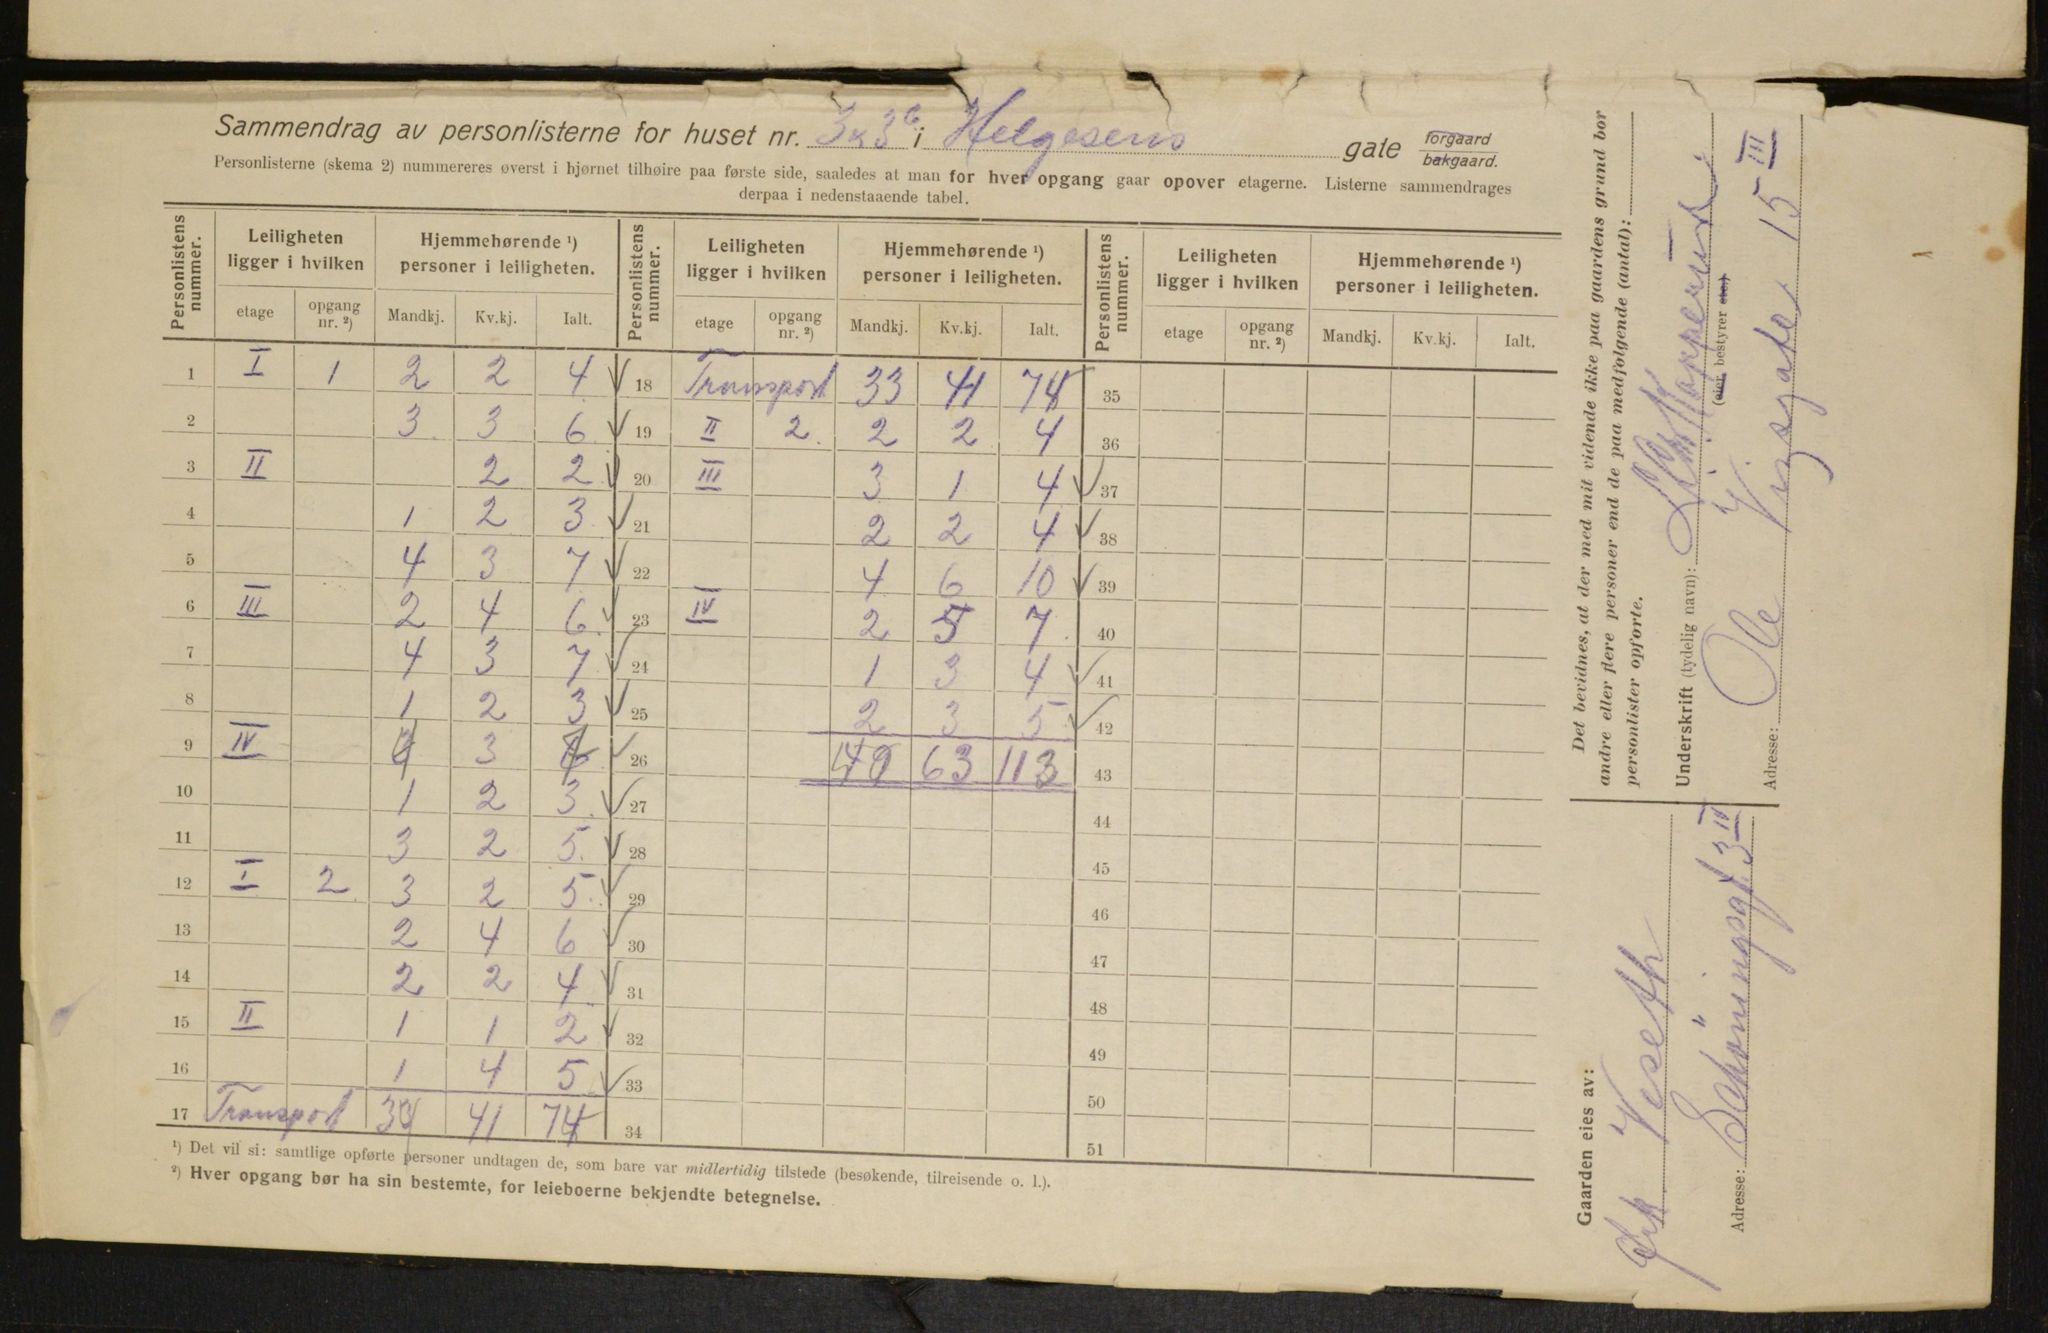 Sammendrag av personlisterne for huset nr. 3 & 3 b i Helgesens gate forgaard bakgaard.
Personlisterne (skema 2) nummereres øverst i hjørnet tilhøire paa første side, saaledes at man for hver opgang gaar opover etagerne. Listerne sammendrages
derpaa i nedenstaaende tabel.
Personlistens nummer. Leiligheten ligger i hvilken Hjemmehørende ¹) personer i leiligheten. Personlistens nummer. Leiligheten ligger i hvilken Hjemmehørende ¹) personer i leiligheten. Personlistens nummer. Leiligheten ligger i hvilken Hjemmehørende ¹) personer i leiligheten.
etage opgang nr. ²) Mandkj. Kv.kj. Ialt. etage opgang nr. ²) Mandkj. Kv.kj. Ialt. etage opgang nr. ²) Mandkj. Kv.kj. Ialt.
1 I 1 2 2 4 18 Transport 33 41 74 35
2 3 3 6 19 II 2 2 2 4 36
3 II 2 2 20 III 3 1 4 37
4 1 2 3 21 2 2 4 38
5 4 3 7 22 4 6 10 39
6 III 2 4 6 23 IV 2 5 7 40
7 4 3 7 24 1 3 4 41
8 1 2 3 25 2 3 5 42
9 IV 3 26 49 63 113 43
10 1 2 3 27 44
11 3 2 5 28 45
12 I 2 3 2 5 29 46
13 2 4 6 30 47
14 2 2 4 31 48
15 II 1 1 2 32 49
16 1 4 5 33 50
17 Transport 33 41 74 34 51
¹) Det vil si: samtlige opførte personer undtagen de, som bare var midlertidig tilstede (besøkende, tilreisende o. l.).
²) Hver opgang bør ha sin bestemte, for leieboerne bekjendte betegnelse.
Det bevidnes, at der med mit vidende ikke paa gaardens grund bor
andre eller flere personer end de paa medfølgende (antal):
personlister opførte.
Underskrift (tydelig navn):
(eier, bestyrer etc)
Adresse: Ole Vigsgate 15 III
Gaarden eies av:
Veseth
Adresse: Schöningsgt. 3 IV